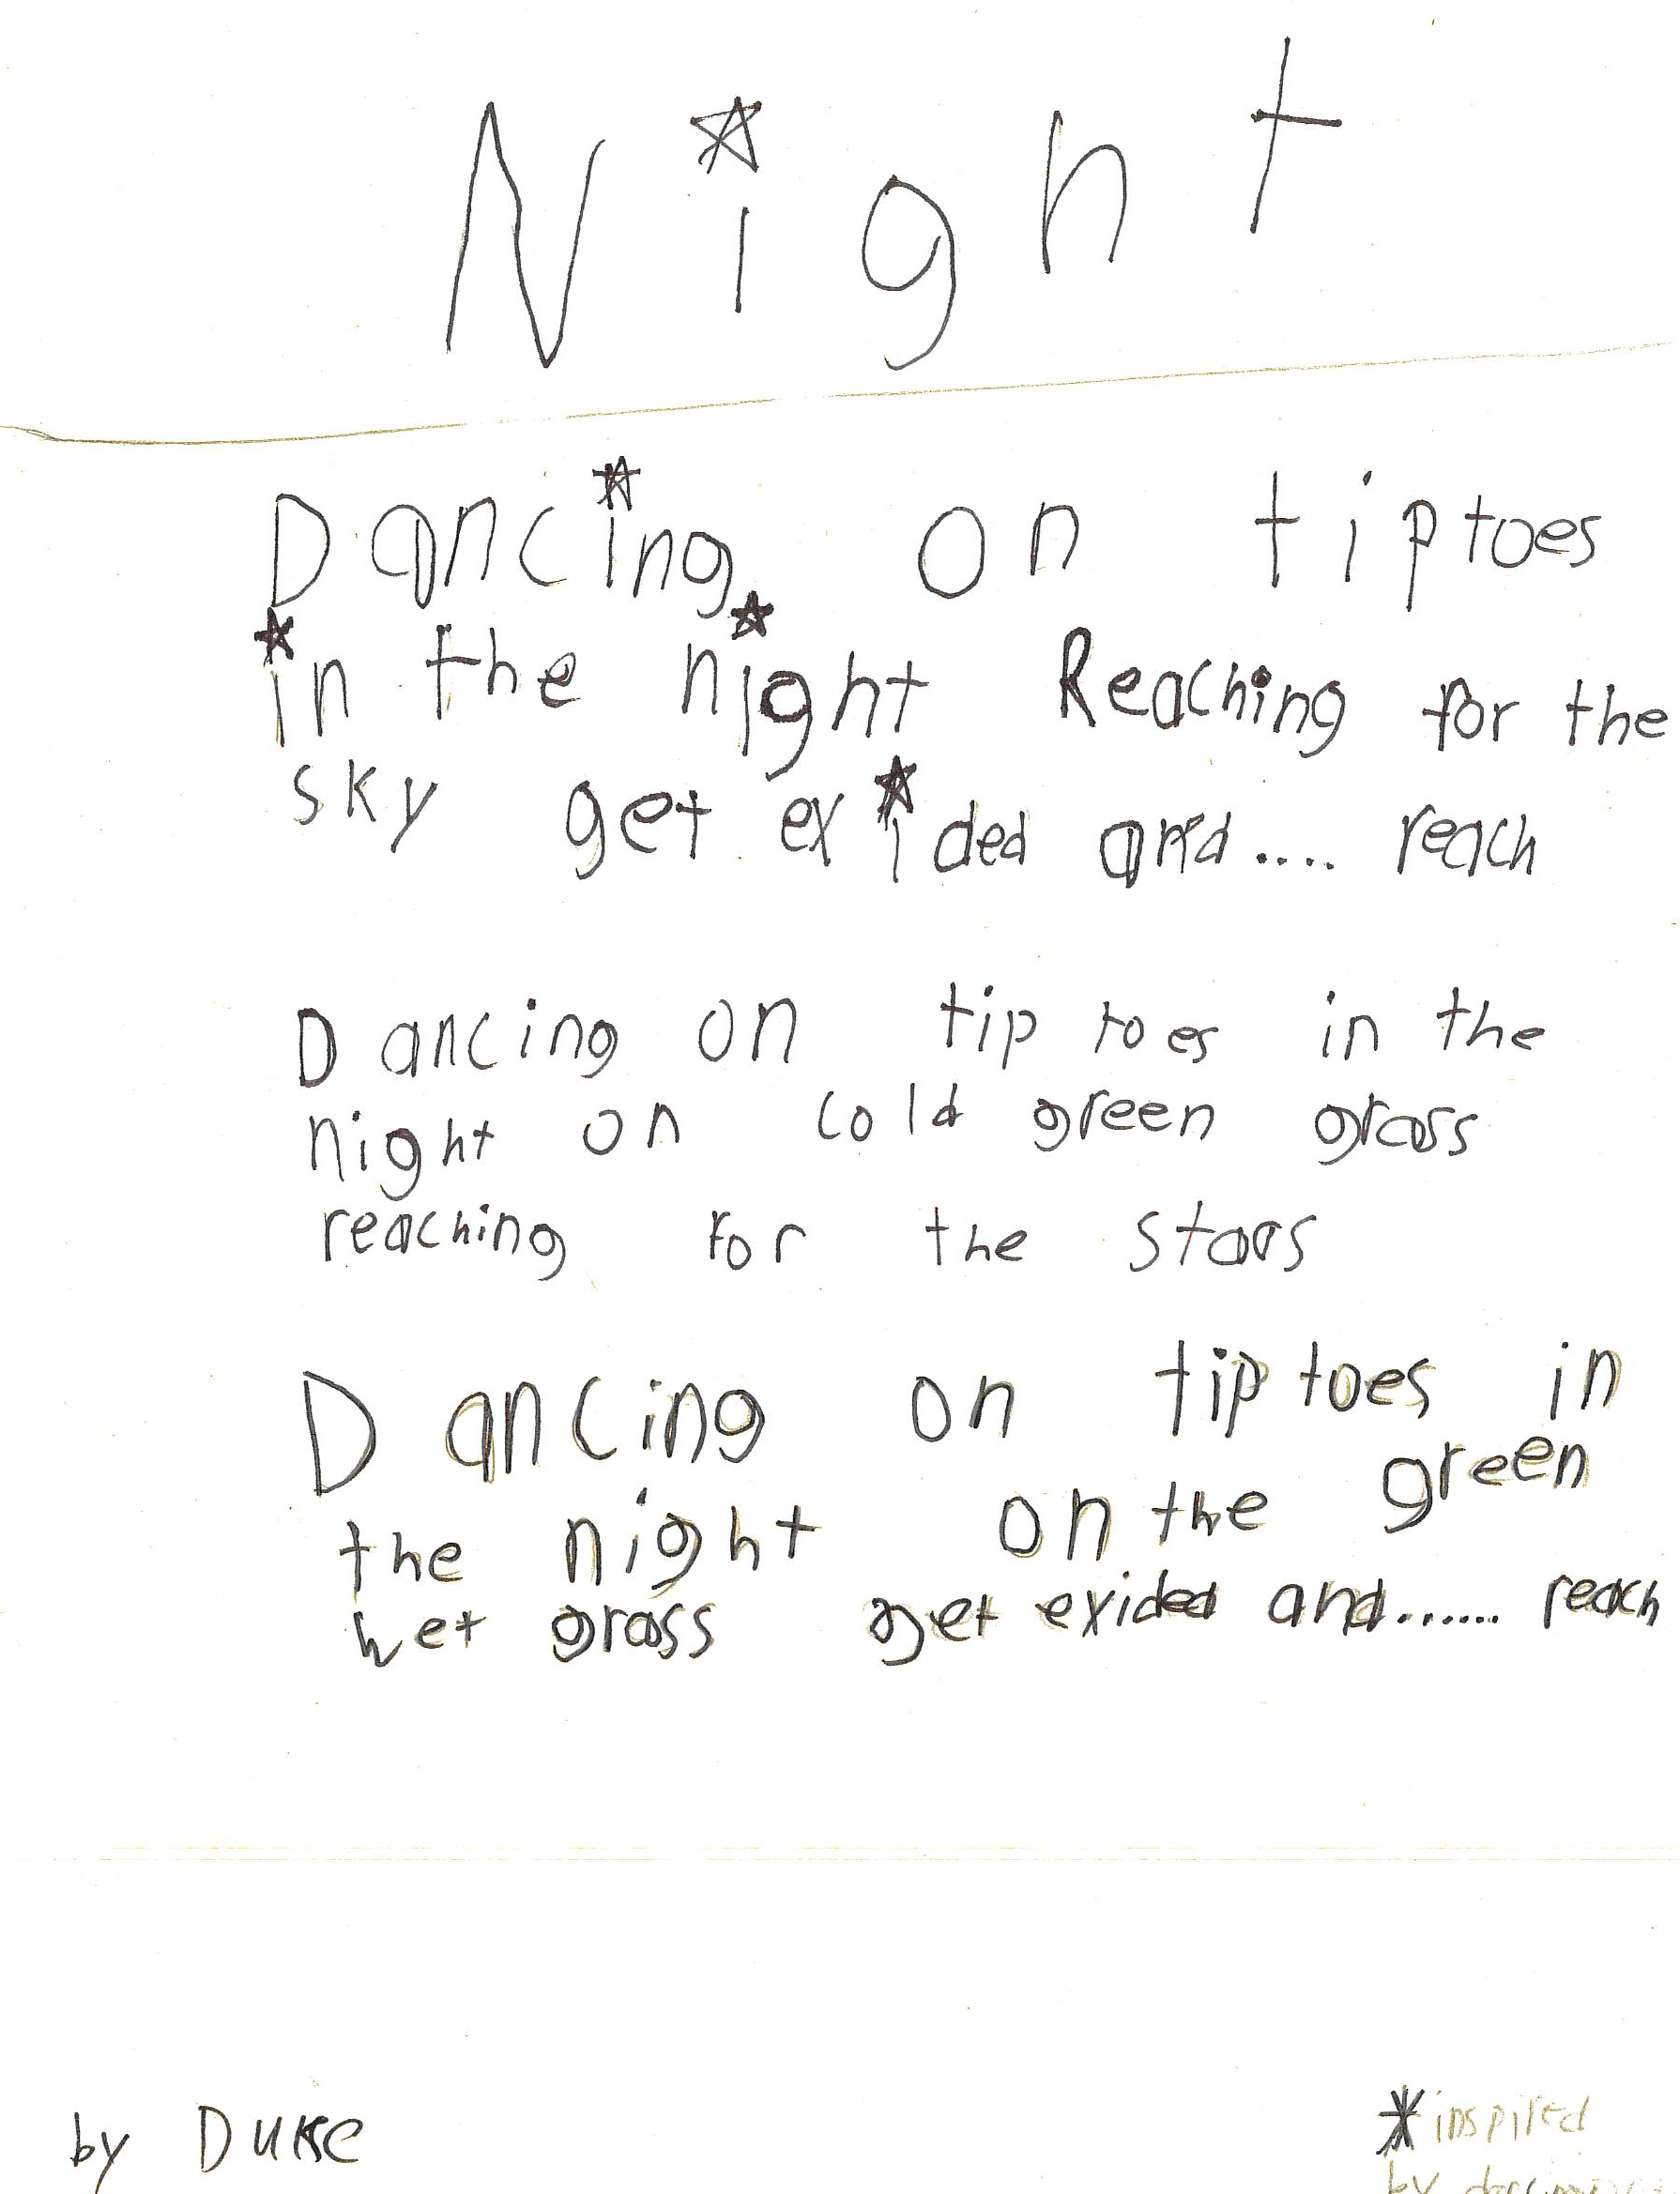 Night
Dancing on tiptoes
in the night Reaching for the
sky get exided and.... reach
Dancing on tip toes in the
night on cold green grass
reaching for the stars
Dancing on tip toes in
the night on the green
wet grass get exided and...... reach
by Duke
*inspired
by